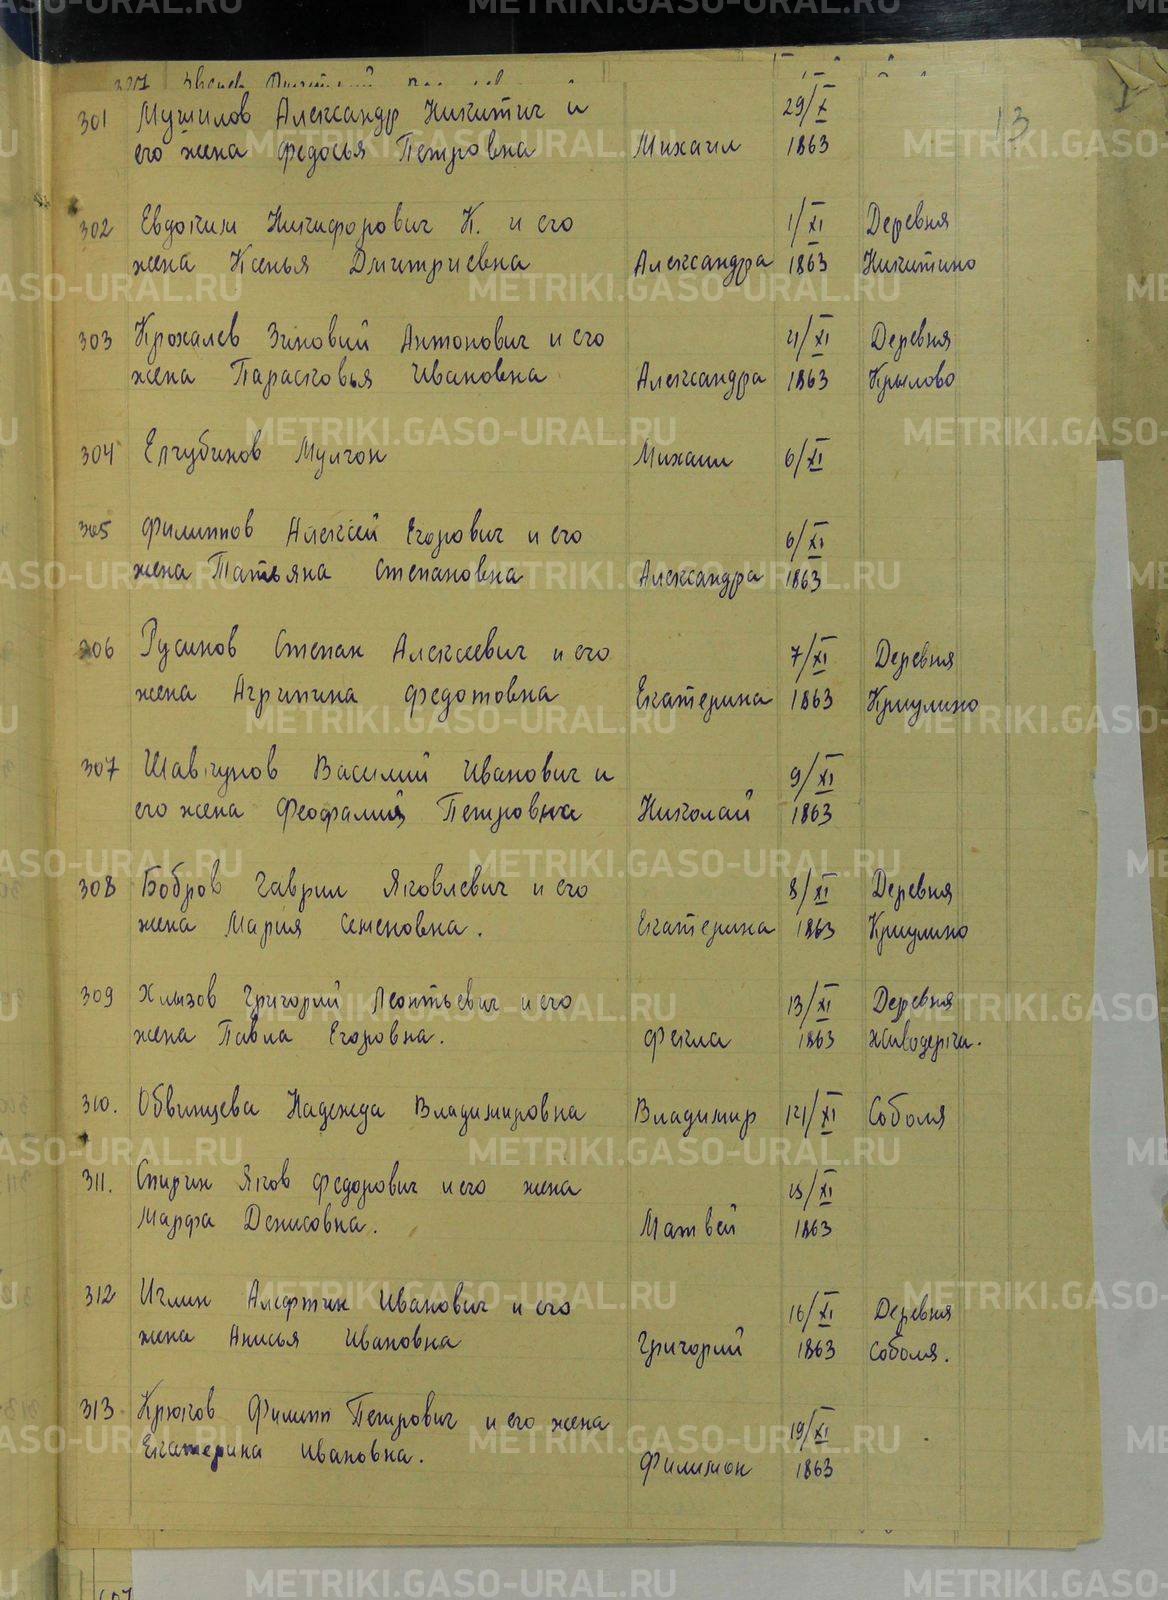 13
301 Мушилов Александр Никитич и 29/X
его жена Федосья Петровна Михаил 1863
302 Евдоким Никифорович К. и его 1/XI Деревня
жена Ксенья Дмитриевна Александра 1863 Никитино
303 Крохалев Зиновий Антонович и его 4/XI Деревня
жена Парасковья Ивановна Александра 1863 Крылово
304 Елчубинов Михаил 6/XI
305 Филиппов Алексей Егорович и его 6/XI
жена Татьяна Степановна Александра 1863
306 Русинов Степан Алексеевич и его 7/XI Деревня
жена Агрипина Федотовна Екатерина 1863 Криулино
307 Шавкунов Василий Иванович и 9/XI
его жена Феофалия Петровна Николай 1863
308 Бобров Гаврил Яковлевич и его 8/XI Деревня
жена Мария Семеновна. Екатерина 1863 Криулино
309 Хлызов Григорий Леонтьевич и его 13/XI Деревня
жена Павла Егоровна. Фекла 1863
310. Обвинцева Надежда Владимировна Владимир 14/XI Соболя
311. Спирин Яков Федорович и его жена 15/XI
Марфа Денисовна. Матвей 1863
312 Иглин Алфтин Иванович и его 16/XI Деревня
жена Анисья Ивановна Григорий 1863 Соболя.
313 Крюков Филипп Петрович и его жена 19/XI
Екатерина Ивановна. Филимон 1863
METRIKI.GASO-URAL.RU